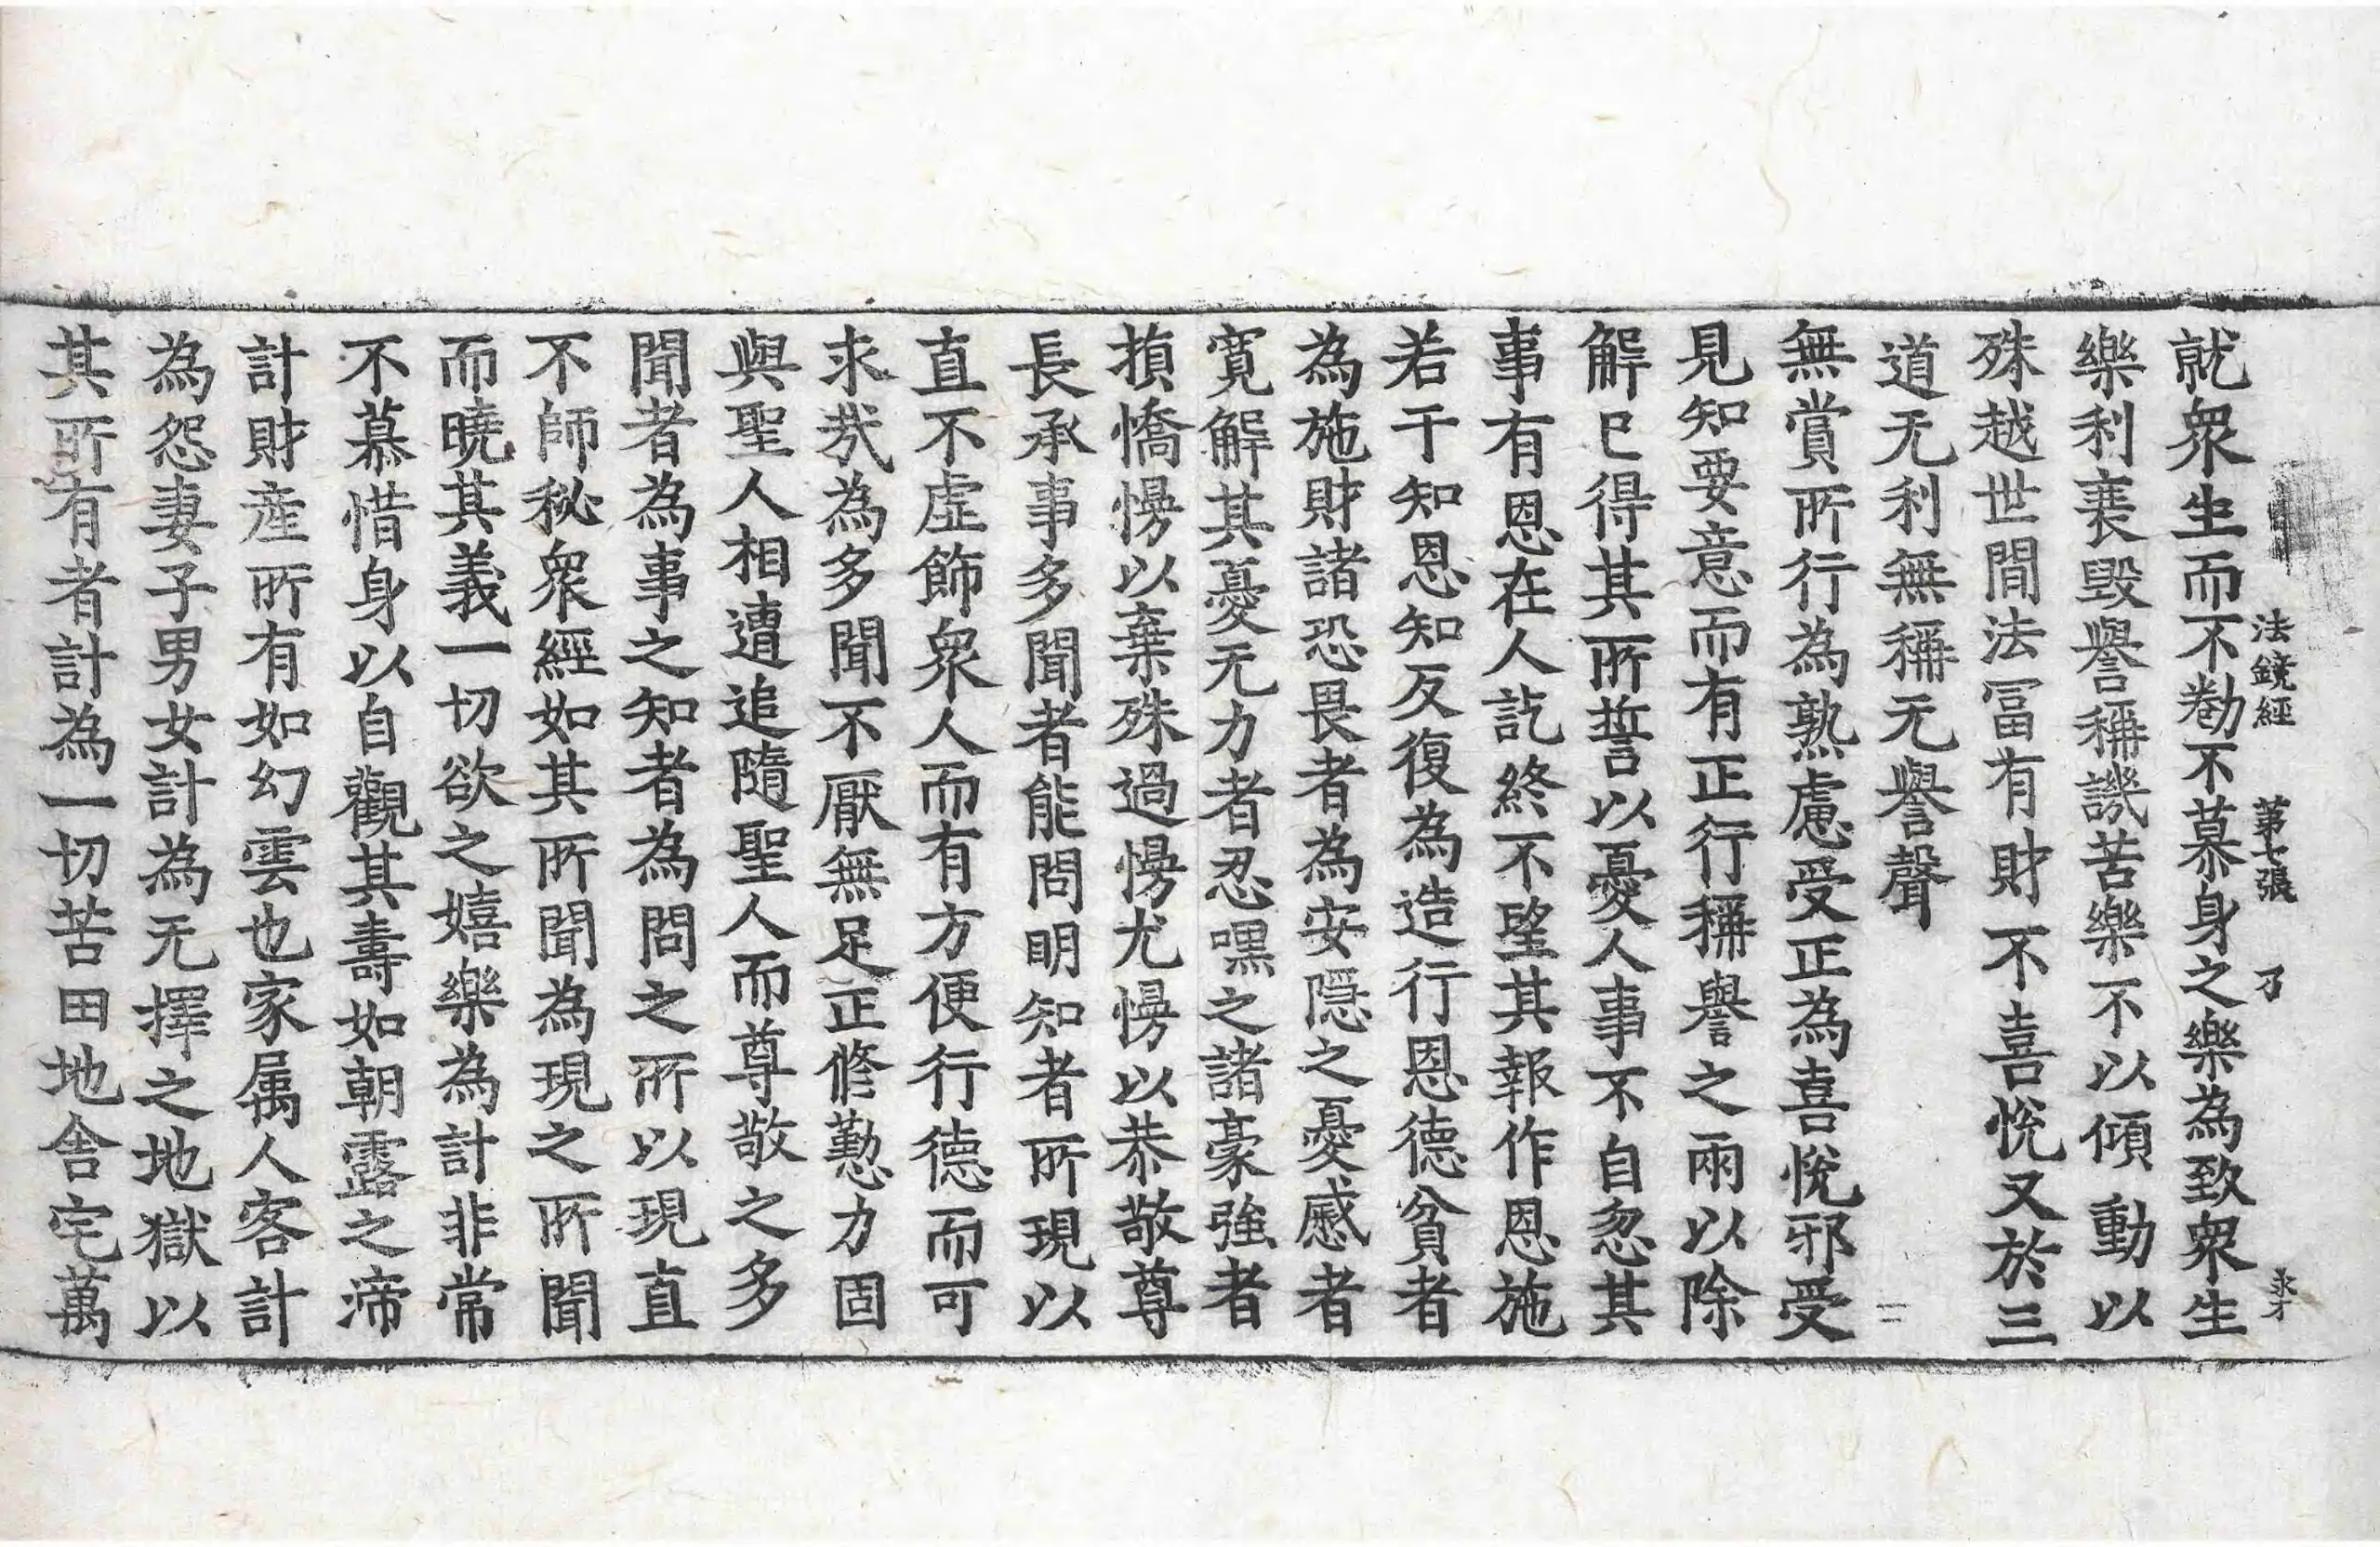 法鏡經 第七張 乃
就衆生而不勌不慕身之樂為致衆生
樂利衰毀譽稱譏苦樂不以傾動以
殊越世間法冨有財不喜悅又於三
道无利無稱无譽聲 二
無賞所行為熟慮受正為喜悅邪受
見知要意而有正行稱譽之兩以除
解已得其所誓以憂人事不自忽其
事有恩在人訖終不望其報作恩施
若干知恩知反復為造行恩德貧者
為施財諸恐畏者為安隱之憂慼者
寛解其憂无力者忍嘿之諸豪強者
損憍慢以棄殊過慢尤慢以恭敬尊
長承事多聞者能問明知者所現以
直不虛飾衆人而有方便行德而可
求㢤為多聞不厭無足正修懃力固
與聖人相遭追隨聖人而尊敬之多
聞者為事之知者為問之所以現直
不師秘衆經如其所聞為現之所聞
而曉其義一切欲之嬉樂為計非常
不慕惜身以自觀其壽如朝露之渧
計財産所有如幻雲也家属人客計
為怨妻子男女計為无擇之地獄以
其所有者計為一切苦田地舍宅萬